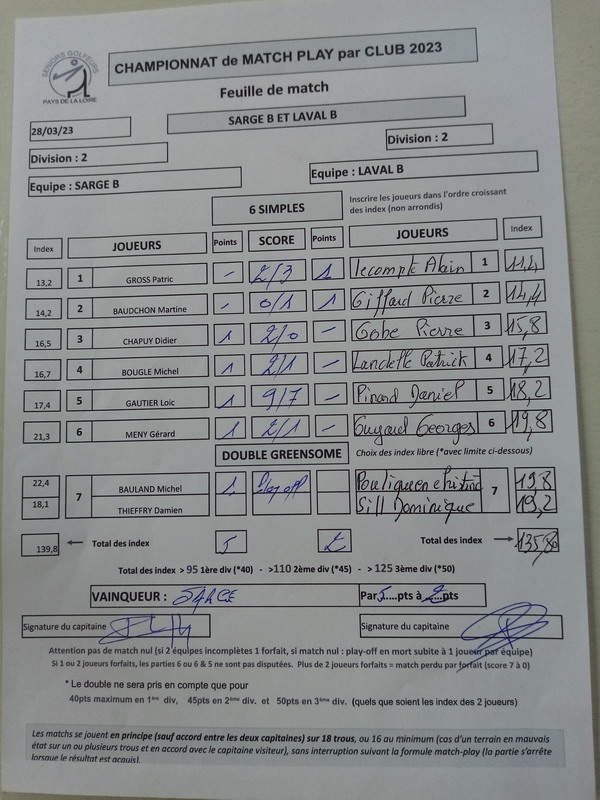 SENIORS GOLFEURS
PAYS DE LA LOIRE
CHAMPIONNAT de MATCH PLAY par CLUB 2023
Feuille de match
SARGE B ET LAVAL B
28/03/23
Division : 2 Division : 2
Equipe : SARGE B Equipe : LAVAL B
6 SIMPLES Inscrire les joueurs dans l'ordre croissant
des index (non arrondis)
Index JOUEURS Points SCORE Points JOUEURS Index
13,2 1 GROSS Patric - 2/3 1 Lecompte Alain 1 11,4
14,2 2 BAUDCHON Martine - 0/1 1 Giffard Pierre 2 14,4
16,5 3 CHAPUY Didier 1 2/0 - Gobe Pierre 3 15,8
16,7 4 BOUGLE Michel 1 2/1 - Landelle Patrick 4 17,2
17,4 5 GAUTIER Loic 1 9/7 - Pinard Daniel 5 18,2
21,3 6 MENY Gérard 1 2/1 - Guyard Georges 6 19,8
DOUBLE GREENSOME Choix des index libre (*avec limite ci-dessous)
22,4 7 BAULAND Michel 1 Play off Pouliquen 7 19,8
18,1 THIEFFRY Damien Sill Dominique 19,2
139,8 Total des index 5 2 Total des index
Total des index > 95 1ère div (*40) - >110 2ème div (*45) - > 125 3ème div (*50)
VAINQUEUR : SARGE Par 5....pts à 2...pts
Signature du capitaine Signature du capitaine
Attention pas de match nul (si 2 équipes incomplètes 1 forfait, si match nul : play-off en mort subite à 1 joueur par équipe)
Si 1 ou 2 joueurs forfaits, les parties 6 ou 6 & 5 ne sont pas disputées. Plus de 2 joueurs forfaits = match perdu par forfait (score 7 à 0)
* Le double ne sera pris en compte que pour
40pts maximum en 1ère div, 45pts en 2ème div. et 50pts en 3ème div. (quels que soient les index des 2 joueurs)
Les matchs se jouent en principe (sauf accord entre les deux capitaines) sur 18 trous, ou 16 au minimum (cas d'un terrain en mauvais
état sur un ou plusieurs trous et en accord avec le capitaine visiteur), sans interruption suivant la formule match-play (la partie s'arrête
lorsque le résultat est acquis).